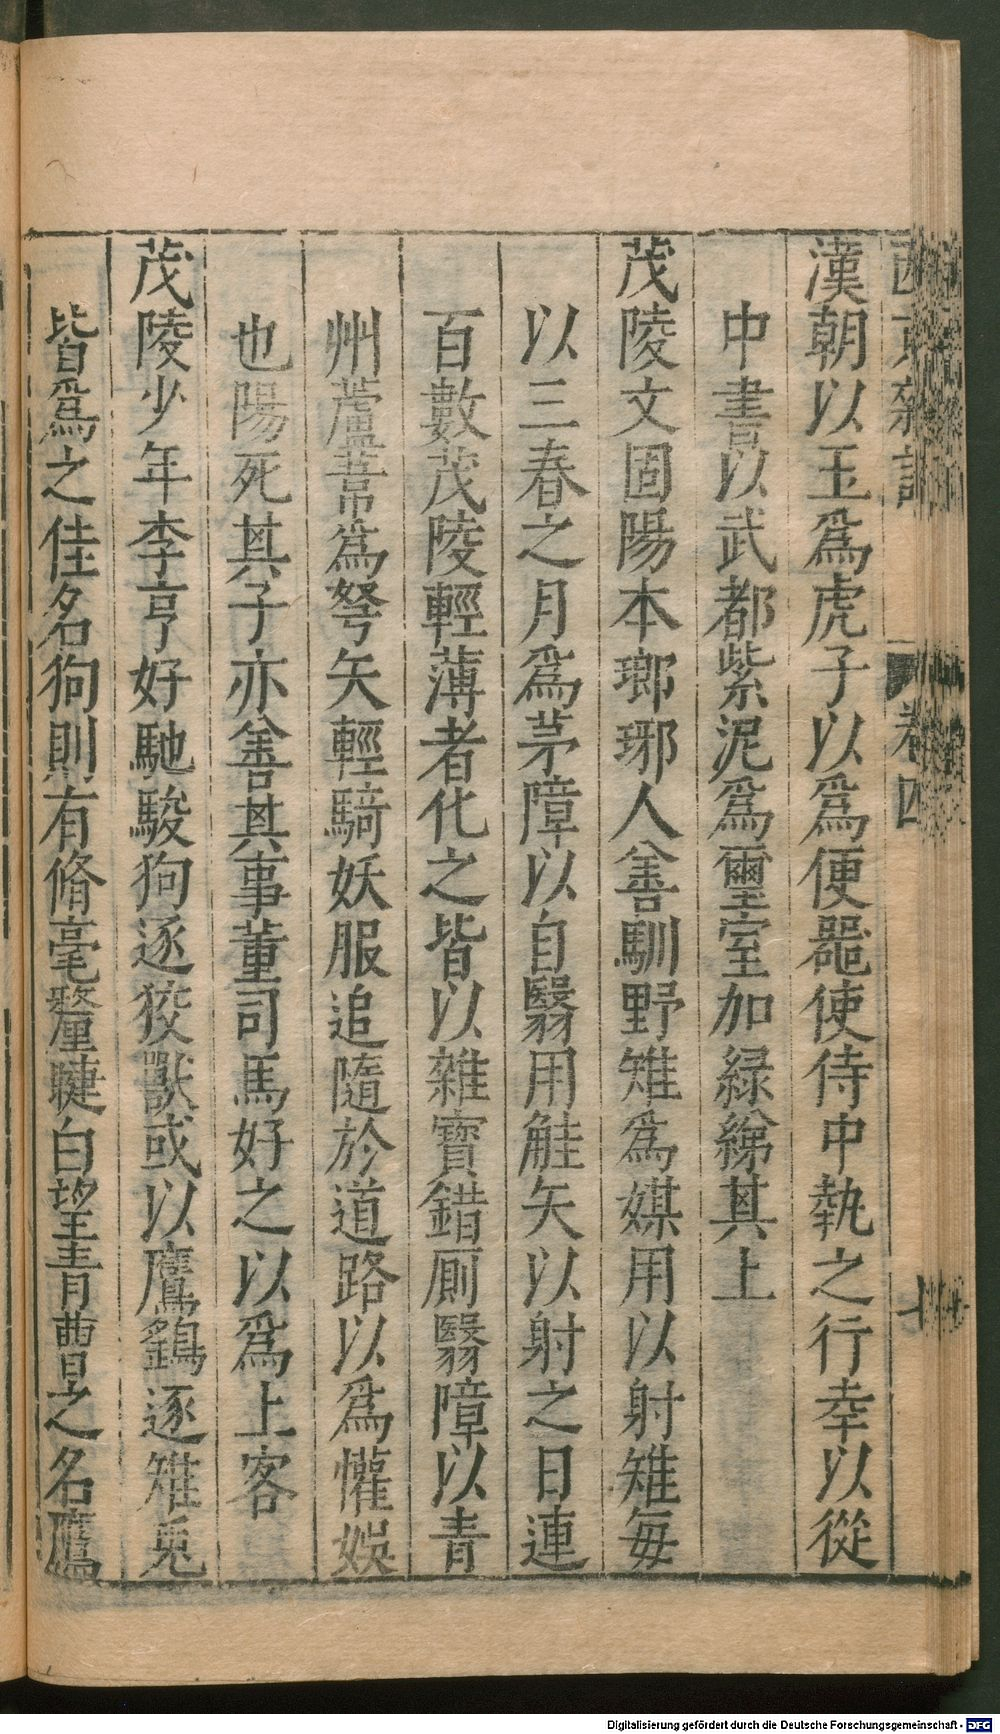 漢朝以玉爲虎子以爲便器使侍中執之行幸以從
中書以武都紫泥爲璽室加綠綈其上
茂陵文固陽本瑯琊人善馴野雉爲媒用以射雉每
以三春之月爲茅障以自翳用觟矢以射之日連
百數茂陵輕薄者化之皆以雜寶錯厠翳障以青
州蘆葦爲弩矢輕騎妖服追隨於道路以爲懽娛
也陽死其子亦善其事董司馬好之以爲上客
茂陵少年李亨好馳駿狗逐狡獸或以鷹鷂逐雉兎
皆爲之佳名狗則有脩毫釐睫白望青曹之名鷹
卷四
Digitalisierung gefördert durch die Deutsche Forschungsgemeinschaft - DFG